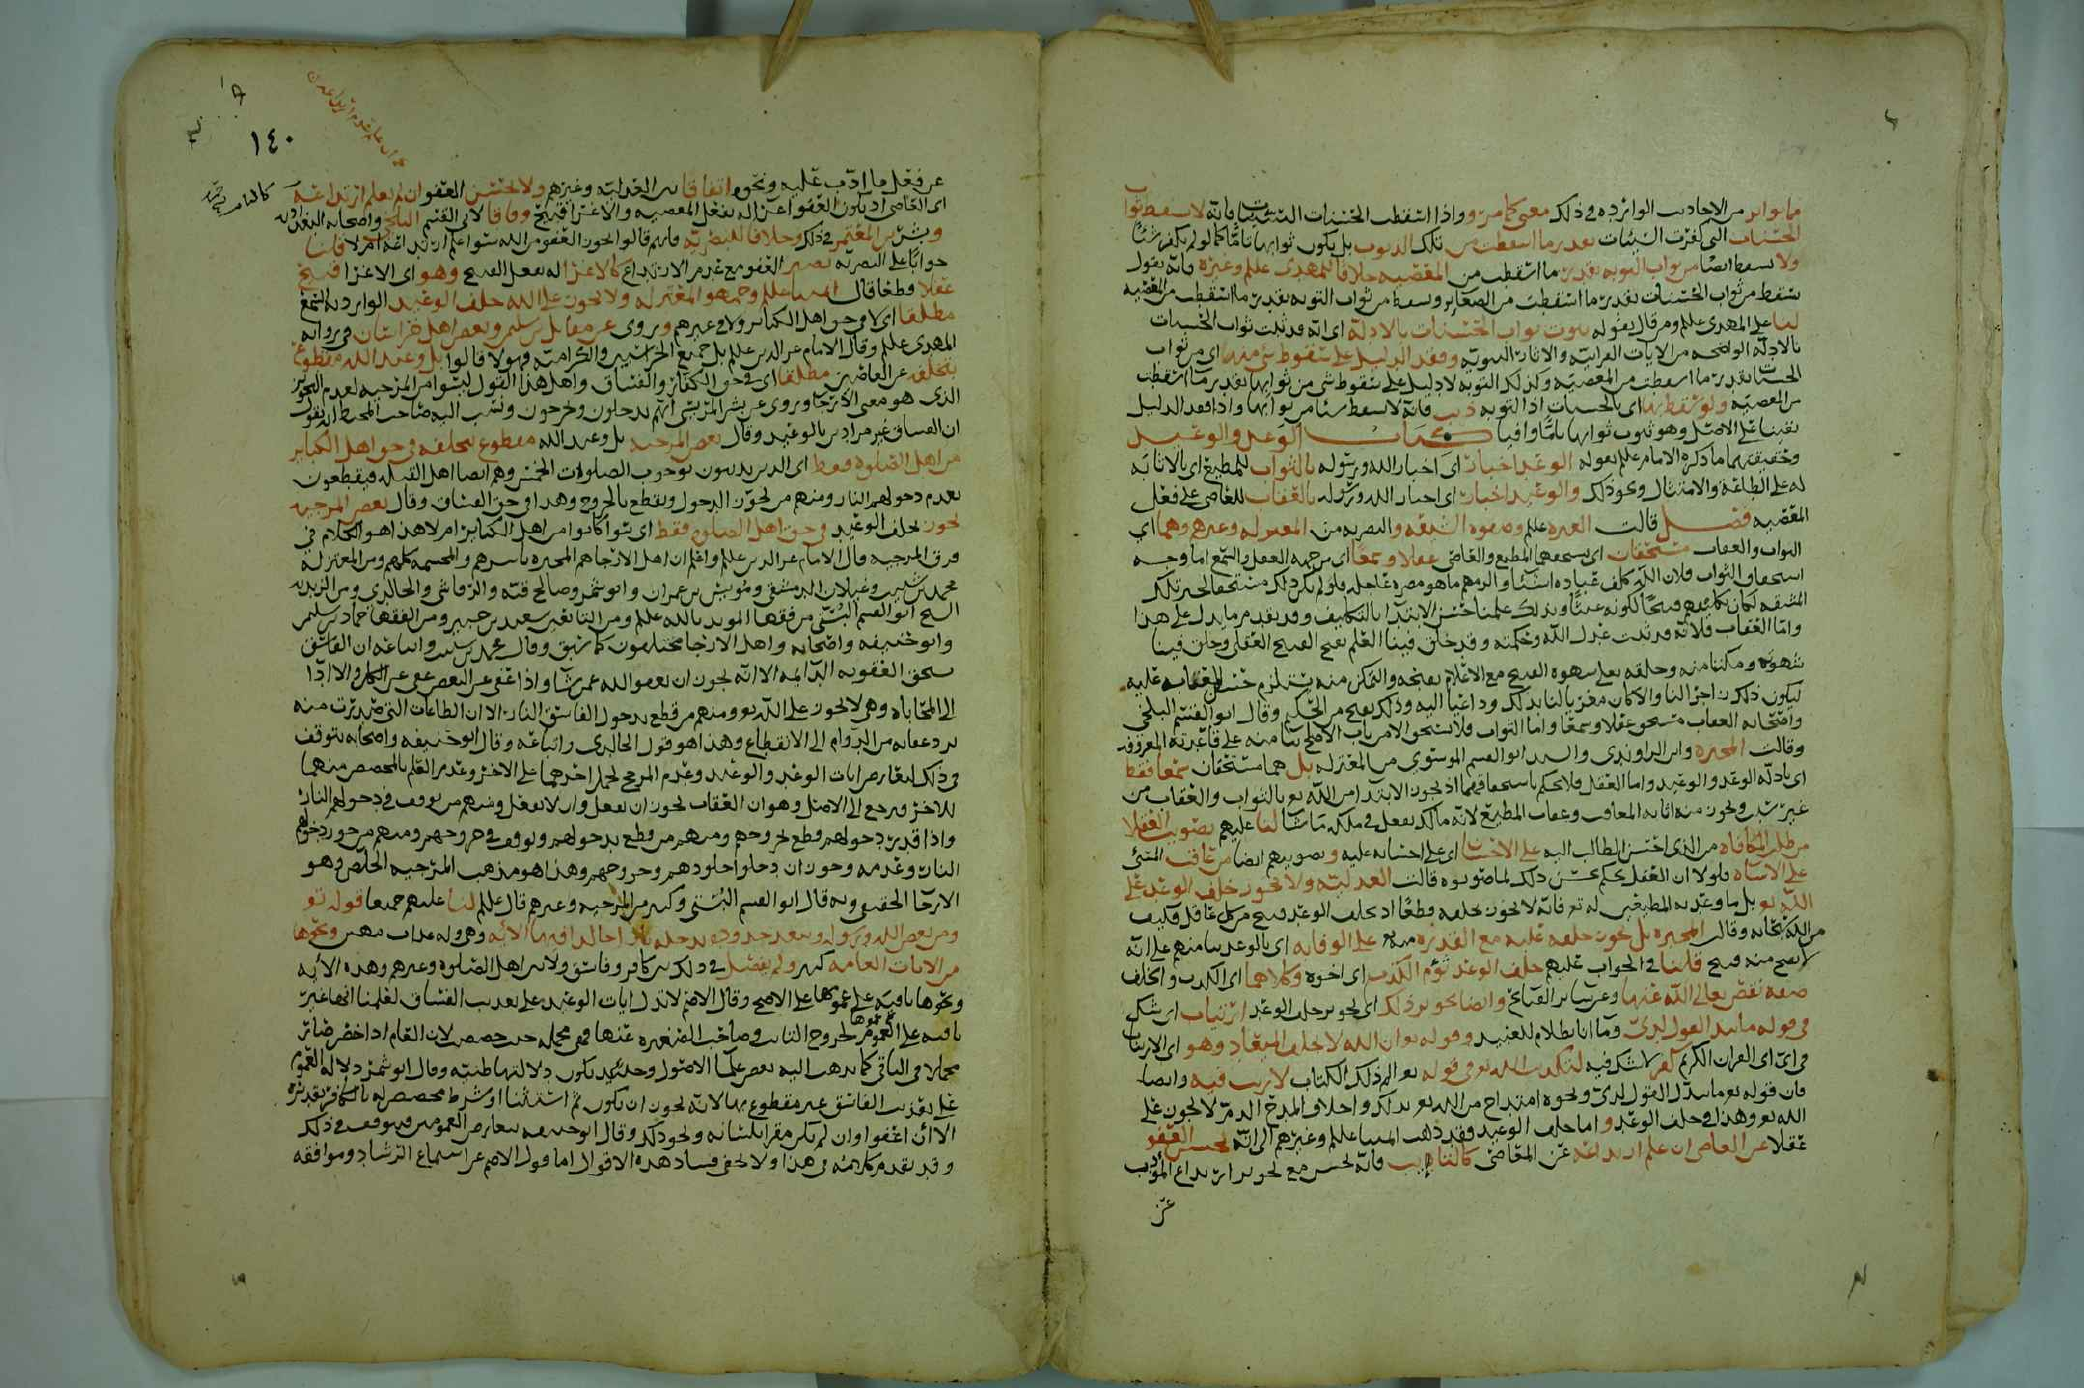 ما تواتر من الاحاديث الوارده في ذلك معنى كما مر واذا اسقطت الحسنات السيئات فانه لا يسقط ثواب
الحسنات التي كفرت السيئات بقدر ما اسقطت من تلك الذنوب بل يكون ثوابها تاما كما لو لم يكفر شيئا
ولا يسقط ايضا من ثواب التوبه بقدر ما اسقطت من المعصيه خلافا للمهدي علم وغيره فانه يقول
يسقط من ثواب الحسنات بقدر ما اسقطت من الصغاير ويسقط من ثواب التوبه بقدر ما اسقطت من المعصيه
لنا على المهدي علم ومن قال بقوله ثبوت ثواب الحسنات بالادلة اي انه قد ثبت ثواب الحسنات
بالادله الواضحه من الايات القرانيه والاثار النبويه وفقد الدليل على سقوط شي منه اي من ثواب
الحسنات بقدر ما اسقطت من المعصيه وكذلك التوبه لا دليل على سقوط شي من ثوابها بقدر ما اسقطت
من المعصيه ولو سقط بها اي بالحسنات اذ التوبه ذنب فانه لا يسقط شيئا من ثوابها واذا فقد الدليل
بقينا على الاصل وهو ثبوت ثوابها تاما وافيا كتاب الوعد والوعيد
وحقيقتهما ما ذكره الامام علم بقوله الوعد اخبار اي اخبار الله ورسوله بالثواب للمطيع اي بالاثابه
له على الطاعة والامتثال ونحو ذلك والوعيد اخبار اي اخبار الله ورسوله بالعقاب للعاصي على فعل
المعصيه فصل قالت العتره علم وصفوه الشيعه والبصريه من المعتزله وغيرهم وهما اي
الثواب والعقاب مستحقان اي يستحقهما المطيع والعاصي عقلا وسمعا اي من جهه العقل والسمع اما وجه
استحقاق الثواب فلان الله كلف عباده اشيا والزمهم ما هو مضره عاجله فلو لم يكن ذلك مستحقا لجبر تلك
المشقه لكان تكليفهم قبيحا لكونه عبثا وبذلك علمنا حسن الابتدا بالتكليف وقد تقدم ما يدل على هذا
واما العقاب فلانه قد ثبت عدل الله وحكمته وقد خلق فينا العلم بقبح القبيح العقلي وخلق فينا
شهوته ومكننا منه وخلقه تعالى شهوه القبيح مع الاعلام بقبحه والتمكن منه يستلزم حسن العقاب عليه
ليكون ذلك زاجرا لنا والا كان مغريا لنا بذلك وداعيا اليه وذلك يقبح من الحكيم وقال ابو القسم البلخي
واصحابه العقاب مستحق عقلا وسمعا واما الثواب فلا يستحق الا من باب الاصلح بنا منه على قاعدته المعروفه
وقالت المجبره وابن الراوندي والسيد ابو القسم الموسوي من المعتزله بل هما مستحقان سمعا فقط
اي بادلة الوعد والوعيد واما العقل فلا يحكم باستحقاقهما اذ يجوز الابتدا من الله تع بالثواب والعقاب من
غير سبب ويجوز منه اثابه المعاقب وعقاب المطيع لانه مالك يفعل في ملكه ما شا لنا عليهم تصويب العقلا
من طلب المكافاه من الذي احسن الطالب اليه على الاحسان اي على احسانه عليه وتصويبهم ايضا من عاقب المسيئ
على الاساه فلولا ان العقل يحكم بحسن ذلك لما صوبوه قالت العدليه ولا يجوز خلف الوعد على
الله تع بل ما وعد به المطيعين له تع فانه لا يجوز تخلفه قطعا اذ خلف الوعد قبيح من كل عاقل فكيف
من الله سبحانه وقالت المجبره بل يجوز خلفه عليه مع القدره منه على الوفا به اي بالوعد بنا منهم على انه
لا يقبح منه قبيح قلنا في الجواب عليهم خلف الوعد توأم الكذب اي اخوه وكلاهما اي الكذب والخلف
صفه نقص تعالى الله عنها وعن ساير القبايح وايضا تجويز ذلك اي تجويز خلف الوعد ارتياب اي شك
في قوله ما يبدل القول لدي وما انا بظلام للعبيد وقوله تع ان الله لا يخلف الميعاد وهو اي الارتياب
في اي اي القران الكريم كفر لا شك فيه لتكذيب الله تع في قوله تع الم ذلك الكتاب لا ريب فيه وايضا
فان قوله تع ما يبدل القول لدي ونحوه امتداح من الله تع بذلك واخلاف المدح الذم لا يجوز على
الله تع وهذا في خلف الوعد واما خلف الوعيد فقد ذهب ايمتنا علم وغيرهم الى انه يحسن العفو
عقلا عن العاصي ان علم ارتداعه عن المعاصي كالتايب فانه يحسن مع تجويز ارتداع المؤدب
عن
١٤٠
عن فعل ما ادب عليه ونحوه اتفاقا بين العدليه وغيرهم ولا يحسن العفو ان لم يعلم ارتداعه
اي العاصي اذ يكون العفو اغرا له بفعل المعصيه والاغرا قبيح وفاقا لابي القسم البلخي واصحابه البغداديه
وبشر بن المعتمر في ذلك وخلافا للبصريه فانهم قالوا يجوز العفو من الله سوا علم ارتداعه ام لا قلنا
جوابا على البصريه يصير العفو مع عدم الارتداع كالاغرا له بفعل القبيح وهو اي الاغرا قبيح
عقلا وقطعا قال ايمتنا علم وجمهور المعتزله ولا يجوز على الله خلف الوعيد الوارد به السمع
مطلقا اي لا في حق اهل الكباير ولا في غيرهم وروي عن مقاتل بن سليمن وبعض اهل خراسان في روايه
المهدي علم وقال الامام عز الدين علم بل جميع الخراسانيين والكراميه وهولا قالوا بل وعيد الله مقطوع
بتخلفه عن العاصين مطلقا اي في حق الكفار والفساق واهل هذا القول ليسوا من المرجيه لعدم التجويز
الذي هو معنى الارجا وروي عن بشر المريسي انهم يدخلون ويخرجون ونسب اليه صاحب المحيط انه يقول
ان الفساق غير مرادين بالوعيد وقال بعض المرجيه بل وعيد الله مقطوع بتخلفه في حق اهل الكباير
من اهل الصلوه فقط اي الذين يدينون بوجوب الصلوات الخمس وهم ايضا اهل القبله فيقطعون
بعدم دخولهم النار ومنهم من يجوز الدخول ويقطع بالخروج وهذا في حق الفساق وقال بعض المرجيه
يجوز تخلف الوعيد في حق اهل الصلوه فقط اي سوا كانوا من اهل الكباير ام لا هذا هو الكلام في
فرق المرجيه قال الامام عز الدين علم واعلم ان اهل الارجا هم المجبره باسرهم والمجسمه كلهم ومن المعتزله
محمد بن شبيب وغيلان الدمشقي ومويس بن عمران وابو شمر وصالح قبه والرقاشي والخالدي ومن الزيديه
الشيخ ابو القسم البستي من فقها المويد بالله علم ومن التابعين سعيد بن جبير ومن الفقها حماد بن سليمن
وابو حنيفه واصحابه واهل الارجا مختلفون كما سبق وقال محمد بن شبيب واتباعه ان الفاسق
يستحق العقوبه الدايمه الا انه يجوز ان يعفو الله عمن يشا واذا عفى عن البعض عفى عن الكل والا ادا
الى المحاباه وهي لا تجوز على الله تع ومنهم من قطع بدخول الفاسق النار الا ان الطاعات التي صدرت منه
ترد عقابه من الدوام الى الانقطاع وهذا هو قول الخالدي واتباعه وقال ابو حنيفه واصحابه بتوقف
في ذلك لتعارض ايات الوعد والوعيد وعدم المرجح لحمل احدهما على الاخر وعدم العلم بالمخصص منهما
للاخر فيرجع الى الاصل وهو ان العقاب يجوز ان يفعل وان لا يفعل ومنهم من توقف في دخولهم النار
واذا قدر دخولهم قطع بخروجهم ومنهم من قطع بدخولهم وتوقف في خروجهم ومنهم من جوز دخولهم
النار وعدمه وجوز ان دخلوا خلودهم وخروجهم وهذا هو مذهب المرجيه الخلص وهو
الارجا الحقيقي وبه قال ابو القسم البستي وكثير من المرجيه وغيرهم قال علم لنا عليهم جميعا قوله تع
ومن يعص الله ورسوله ويتعد حدوده يدخله نارا خالدا فيها الايه وهي وله عذاب مهين ونحوها
من الايات العامه كثير ولم يفصل في ذلك بين كافر وفاسق ولا بين اهل الصلوه وغيرهم وهذه الايه
ونحوها باقيه على عمومها على الاصح وقال الاصم لا تدل ايات الوعيد على تعذيب الفساق لعلمنا انها غير
باقيه على عمومها لخروج التايب وصاحب الصغيره عنها فهي مجمله حين خصصت لان العام اذا خص صار
مجملا في الباقي كما يذهب اليه بعض علما الاصول وحينئذ يكون دلالتها ظنيه وقال ابو شمر دلاله العموم
على تعذيب الفاسق غير مقطوع بها لانه يجوز ان يكون ثم استثنا او شرط مخصص له بالكافر تقديره
الا ان اعفوا وان لم يكن مقرا بلسانه ونحو ذلك وقال ابو حنيفه بتعارض العمومين فيتوقف في ذلك
وقد تقدم كلامه في هذا ولا يخفى فساد هذه الاقوال اما قول الاصم عن اسماع الترشاد وموافقه